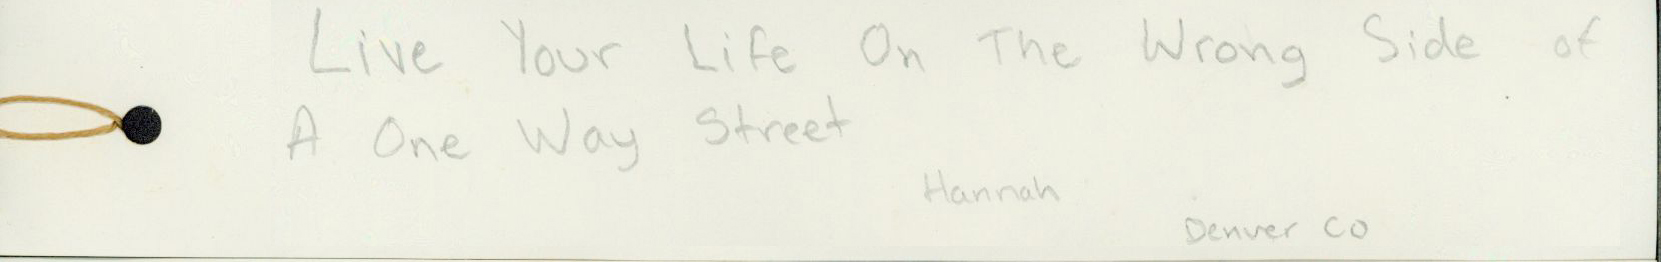 Live Your Life On The Wrong Side of
A One Way Street
Hannah
Denver CO